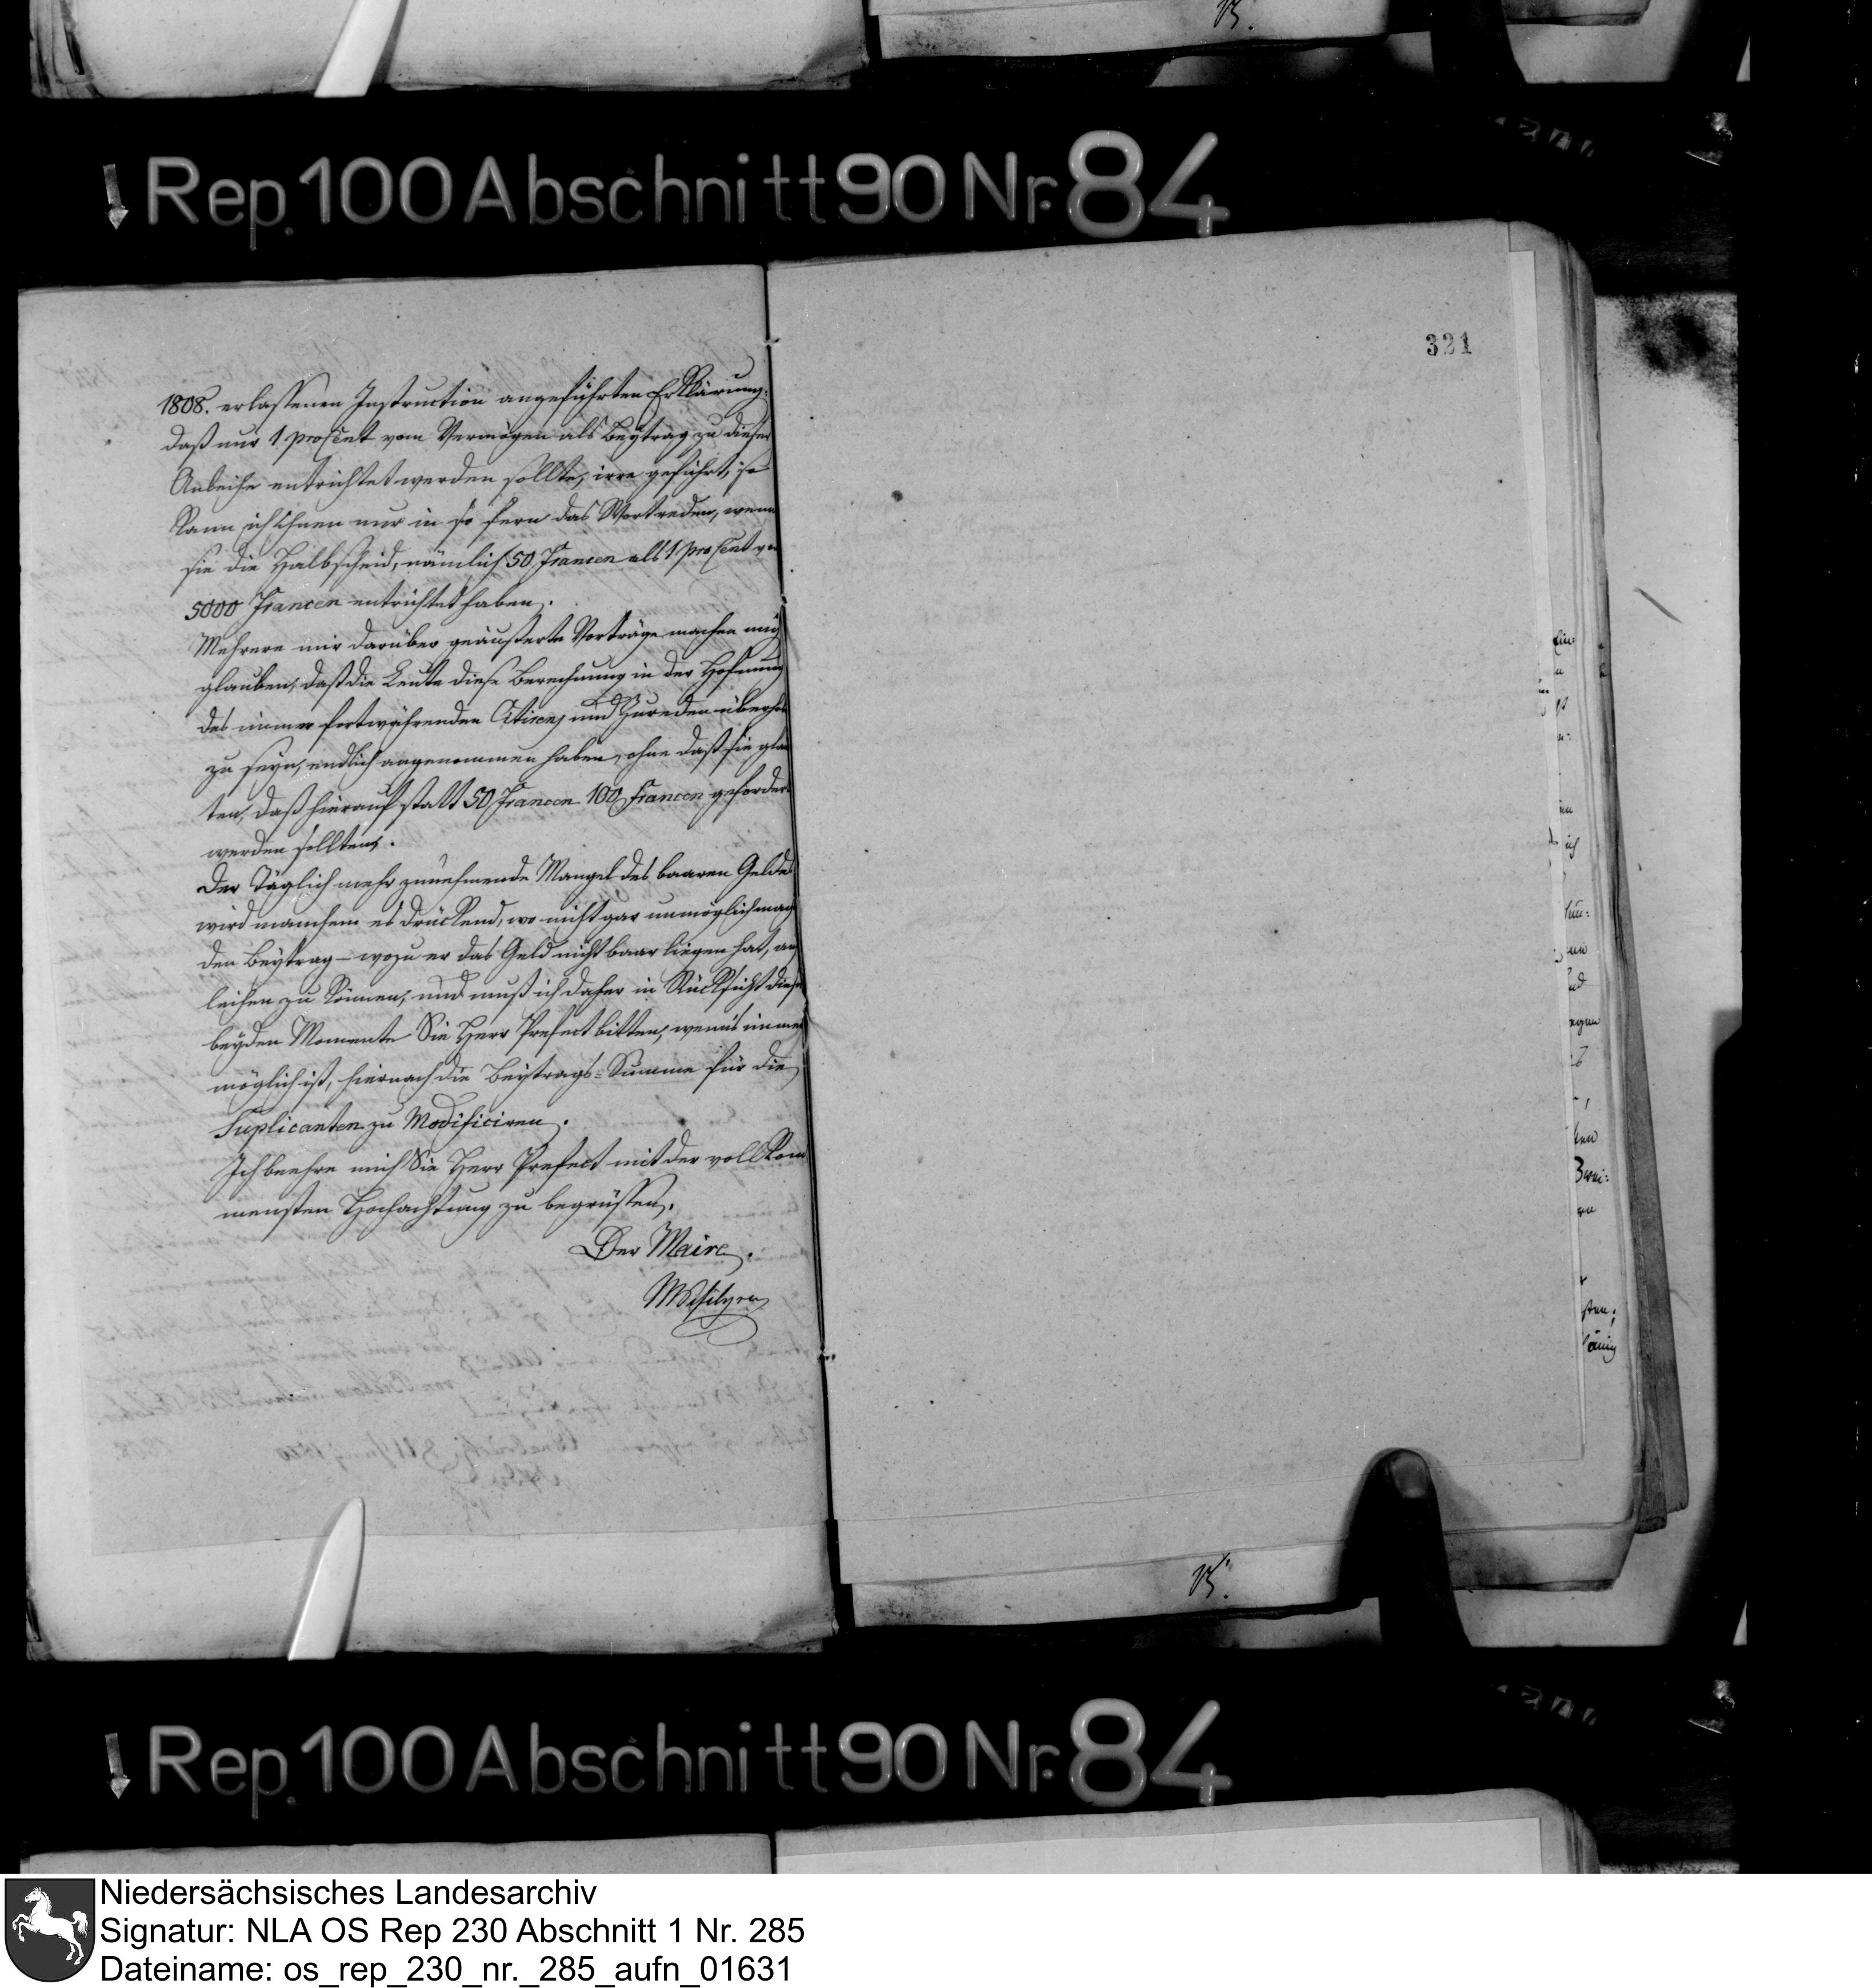 Rep. 100 Abschnitt 90 Nr. 84
321
1808. erlassenen Instruction angeführten Erklärung,
daß nur 1 proCent vom Vermögen als Beytrag zu dieser
Anleihe entrichtet werden sollte, irre geführt, so
kann ich Ihnen nur in so fern das Wort reden, wenn
sie die Halbscheid, nämlich 50 Francen als 1 proCent
5000 Francen entrichtet haben.
Mehrere mir darüber geäußerte Vorträge machen mich
glauben, daß die Leute diese Berechnung in der Hofnung
des immer fortwährenden Citirens und Zureden
zu seyn, endlich angenommen haben, ohne daß sie
ten, daß hierauf statt 50 Francen 100 Francen gefordert
werden sollten.
Der Täglich mehr zunehmende Mangel des baaren Geldes
wird manchem es drückend, wo nicht gar unmöglich
den Beytrag – wozu er das Geld nicht baar liegen hat, an
leihen zu können, und muß ich daher in Rücksicht dieser
beyden Momente Sie Herr Prefect bitten, wenns immer
möglich ist, hiernach die Beytrags=Summe für die
Suplicanten zu Modificiren.
Ich beehre mich Sie Herr Prefect mit der vollkom
mensten Hochachtung zu begrüssen.
Der Maire.
Rep. 100 Abschnitt 90 Nr. 84
Niedersächsisches Landesarchiv
Signatur: NLA OS Rep 230 Abschnitt 1 Nr. 285
Dateiname: os_rep_230_nr._285_aufn_01631